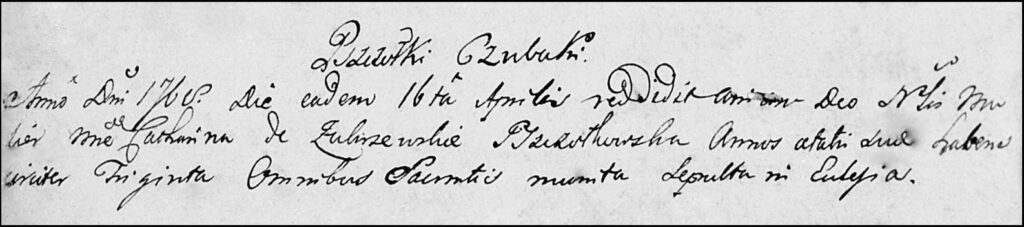 Pszczółki Czubaki.
Anno Dni 1768. Die eadem 16ta Aprilis reddidit animam Deo Nlis Mu
lier nõe Catharina de Zakrzewskie Pszczołkowska Annos ætatis suæ habens
circiter Triginta Omnibus Sacrmtis munita Sepulta in Eclesia.